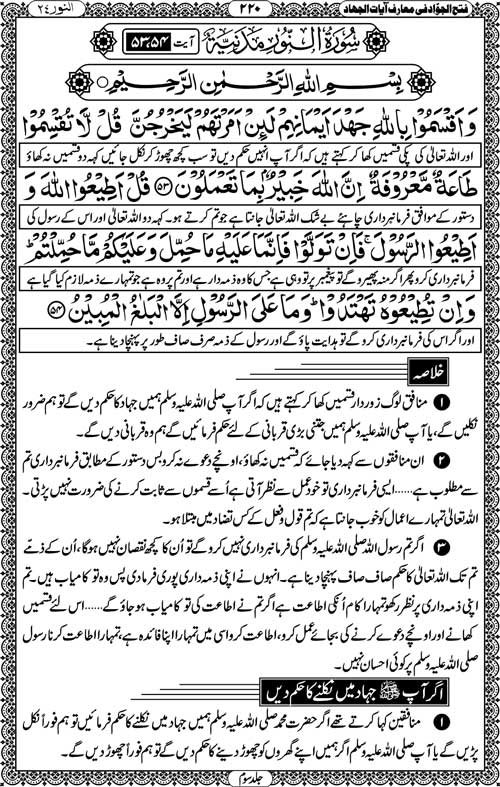 فتح الجوّاد فی معارف آیات الجهاد
۲۲۰
النور ۲۴
سُوْرَةُ النُّوْرِ مَدَنِيَّةٌ آیت ۵۳،۵۴
بِسْمِ اللهِ الرَّحْمٰنِ الرَّحِيْمِ
وَاَقْسَمُوْا بِاللهِ جَهْدَ اَيْمَانِهِمْ لَئِنْ اَمَرْتَهُمْ لَيَخْرُجُنَّ قُلْ لَّا تُقْسِمُوْا
اور اللہ تعالیٰ کی پکی قسمیں کھا کر کہتے ہیں کہ اگر آپ انہیں حکم دیں تو سب کچھ چھوڑ کر نکل جائیں کہہ دو قسمیں نہ کھاؤ
طَاعَةٌ مَّعْرُوْفَةٌ اِنَّ اللهَ خَبِيْرٌۢ بِمَا تَعْمَلُوْنَ ﴿۵۳﴾ قُلْ اَطِيْعُوا اللهَ وَ
دستور کے موافق فرمانبرداری چاہئے بے شک اللہ تعالیٰ جانتا ہے جو تم کرتے ہو۔ کہہ دو اللہ تعالیٰ اور اس کے رسول کی
اَطِيْعُوا الرَّسُوْلَ ۚ فَاِنْ تَوَلَّوْا فَاِنَّمَا عَلَيْهِ مَا حُمِّلَ وَعَلَيْكُمْ مَّا حُمِّلْتُمْ ؕ
فرمانبرداری کرو پھر اگر منہ پھیرو گے تو پیغمبر پر تو وہی ہے جس کا وہ ذمہ دار ہے اور تم پر وہ ہے جو تمہارے ذمہ لازم کیا گیا ہے
وَاِنْ تُطِيْعُوْهُ تَهْتَدُوْا ؕ وَمَا عَلَى الرَّسُوْلِ اِلَّا الْبَلٰغُ الْمُبِيْنُ ﴿۵۴﴾
اور اگر اس کی فرمانبرداری کرو گے تو ہدایت پاؤ گے اور رسول کے ذمہ صرف صاف طور پر پہنچا دینا ہے۔
خلاصہ
۱ منافق لوگ زور دار قسمیں کھا کر کہتے ہیں کہ اگر آپ صلی اللہ علیہ وسلم ہمیں جہاد کا حکم دیں گے تو ہم ضرور
نکلیں گے، یا آپ صلی اللہ علیہ وسلم ہمیں جتنی بڑی قربانی کے لئے حکم فرمائیں گے ہم وہ قربانی دیں گے۔
۲ ان منافقوں سے کہہ دیا جائے کہ قسمیں نہ کھاؤ، اونچے دعوے نہ کرو بس دستور کے مطابق فرمانبرداری تم
سے مطلوب ہے......ایسی فرمانبرداری تو خود عمل سے نظر آتی ہے اُسے قسموں سے ثابت کرنے کی ضرورت نہیں پڑتی۔
اللہ تعالیٰ تمہارے اعمال کو خوب جانتا ہے کہ تم قول و فعل کے کس تضاد میں مبتلا ہو۔
۳ اگر تم رسول اللہ صلی اللہ علیہ وسلم کی فرمانبرداری نہیں کرو گے تو اُن کا کچھ نقصان نہیں ہوگا، اُن کے ذمّے
تم تک اللہ تعالیٰ کا حکم صاف صاف پہنچا دینا ہے۔ انہوں نے اپنی ذمہ داری پوری فرما دی پس وہ تو کامیاب ہیں۔ تم
اپنی ذمہ داری پر نظر رکھو تمہارا کام اُنکی اطاعت ہے اگر تم نے اطاعت کی تو کامیاب ہو جاؤ گے......اس لئے قسمیں
کھانے اور اونچے دعوے کرنے کی بجائے عمل کرو، اطاعت کرو اسی میں تمہارا اپنا فائدہ ہے، تمہارا اطاعت کرنا رسول
صلی اللہ علیہ وسلم پر کوئی احسان نہیں۔
اگر آپ ﷺ جہاد میں نکلنے کا حکم دیں
۱ منافقین کہا کرتے تھے اگر حضرت محمد صلی اللہ علیہ وسلم ہمیں جہاد میں نکلنے کا حکم فرمائیں تو ہم فوراً نکل
پڑیں گے یا آپ صلی اللہ علیہ وسلم اگر ہمیں اپنے گھروں کو چھوڑ دینے کا حکم دیں گے تو ہم فوراً چھوڑ دیں گے۔
جلد سوم